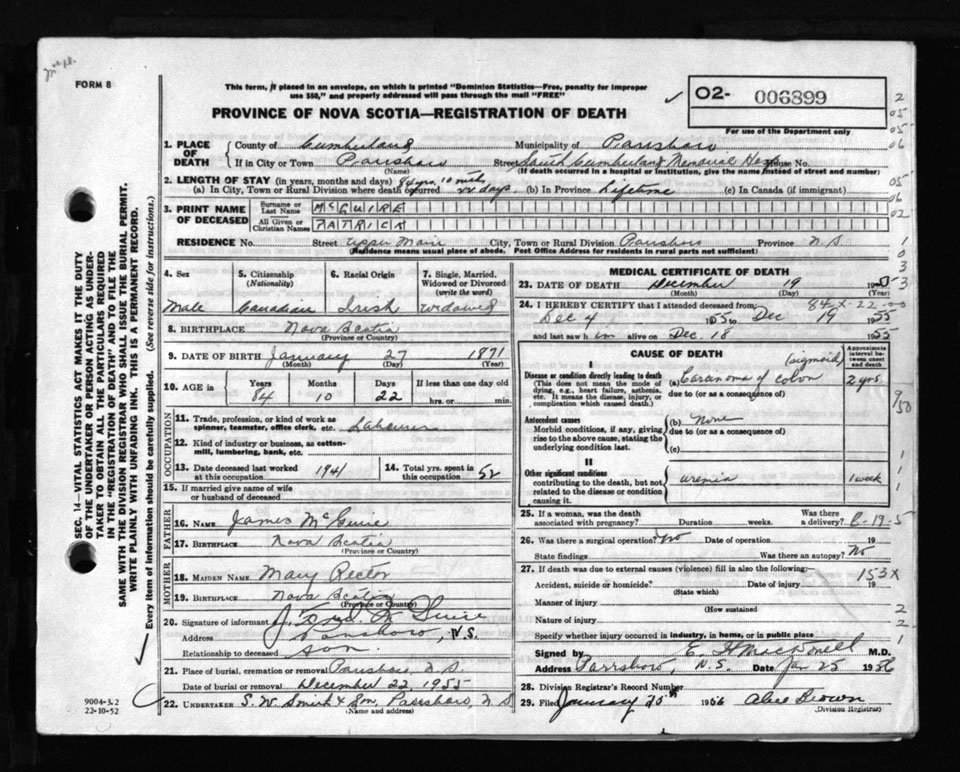 FORM 8
This form, if placed in an envelope, on which is printed "Dominion Statistics—Free, penalty for improper
use $50," and properly addressed will pass through the mail "FREE"
PROVINCE OF NOVA SCOTIA—REGISTRATION OF DEATH
O2- 006899
For use of the Department only
1. PLACE OF DEATH
County of Cumberland Municipality of Parrsboro
If in City or Town Parrsboro Street South Cumberland Memorial Hosp House No.
(Name) (If death occurred in a hospital or institution, give the name instead of street and number)
2. LENGTH OF STAY (in years, months and days) 84 yrs. 10 mths
(a) In City, Town or Rural Division where death occurred 22 days (b) In Province Lifetime (c) In Canada (if immigrant)
3. PRINT NAME OF DECEASED
Surname or Last Name McGUIRE
All Given or Christian Names PATRICK
RESIDENCE No. Street Upper Main City, Town or Rural Division Parrsboro Province N.S.
(Residence means usual place of abode. Post Office Address for residents in rural parts not sufficient)
4. Sex
Male
5. Citizenship
(Nationality)
Canadian
6. Racial Origin
Irish
7. Single, Married, Widowed or Divorced
(write the word)
Widowed
8. BIRTHPLACE Nova Scotia
(Province or Country)
9. DATE OF BIRTH January 27 1871
(Month) (Day) (Year)
10. AGE in
Years Months Days If less than one day old
84 10 22 hrs. or min.
OCCUPATION
11. Trade, profession, or kind of work as
spinner, teamster, office clerk, etc. Labourer
12. Kind of industry or business, as cotton-
mill, lumbering, bank, etc.
13. Date deceased last worked
at this occupation 1941
14. Total yrs. spent in
this occupation 52
15. If married give name of wife
or husband of deceased
FATHER
16. NAME James McGuire
17. BIRTHPLACE Nova Scotia
(Province or Country)
MOTHER
18. MAIDEN NAME Mary Rector
19. BIRTHPLACE Nova Scotia
(Province or Country)
20. Signature of informant McGuire
Address Parrsboro, N.S.
Relationship to deceased son.
21. Place of burial, cremation or removal Parrsboro, N.S.
Date of burial or removal December 22, 1955
22. UNDERTAKER S. W. Smith & Son, Parrsboro, N.S.
(Name and address)
MEDICAL CERTIFICATE OF DEATH
23. DATE OF DEATH December 19 1955
(Month) (Day) (Year)
84-X-22
24. I HEREBY CERTIFY that I attended deceased from:
Dec 4 1955 to Dec 19 1955
and last saw him alive on Dec. 18 1955
CAUSE OF DEATH
Approximate interval between onset and death
I
Disease or condition directly leading to death
(This does not mean the mode of
dying, e.g., heart failure, asthenia,
etc. It means the disease, injury, or
complication which caused death.)
(sigmoid)
(a) Carcinoma of colon 2 yrs.
due to (or as a consequence of)
Antecedent causes
Morbid conditions, if any, giving
rise to the above cause, stating the
underlying condition last.
(b) None
due to (or as a consequence of)
(c)
II
Other significant conditions
contributing to the death, but not
related to the disease or condition
causing it.
uremia 1 week
25. If a woman, was the death
associated with pregnancy? Duration weeks. Was there a delivery? B-19-5
26. Was there a surgical operation? No Date of operation 19
State findings Was there an autopsy? No
27. If death was due to external causes (violence) fill in also the following:—
153X
Accident, suicide or homicide? Date of injury 19
(State which)
Manner of injury
(How sustained
Nature of injury
Specify whether injury occurred in industry, in home, or in public place
Signed by E. H. MacDonell M.D.
Address Parrsboro, N.S. Date Jan 25 1956
28. Division Registrar's Record Number
29. Filed January 25th 1956 Alice Brown
(Division Registrar)
SEC. 14—VITAL STATISTICS ACT MAKES IT THE DUTY
OF THE UNDERTAKER OR PERSON ACTING AS UNDER-
TAKER TO OBTAIN ALL THE PARTICULARS REQUIRED
IN THE "REGISTRATION OF DEATH" AND TO FILE THE
SAME WITH THE DIVISION REGISTRAR WHO SHALL ISSUE THE BURIAL PERMIT.
WRITE PLAINLY WITH UNFADING INK. THIS IS A PERMANENT RECORD.
Every item of information should be carefully supplied. (See reverse side for instructions.)
9004-3.2
22-10-52
2
05
05
06
05
06
02
1
0
3
3
950
1
1
1
2
2
1